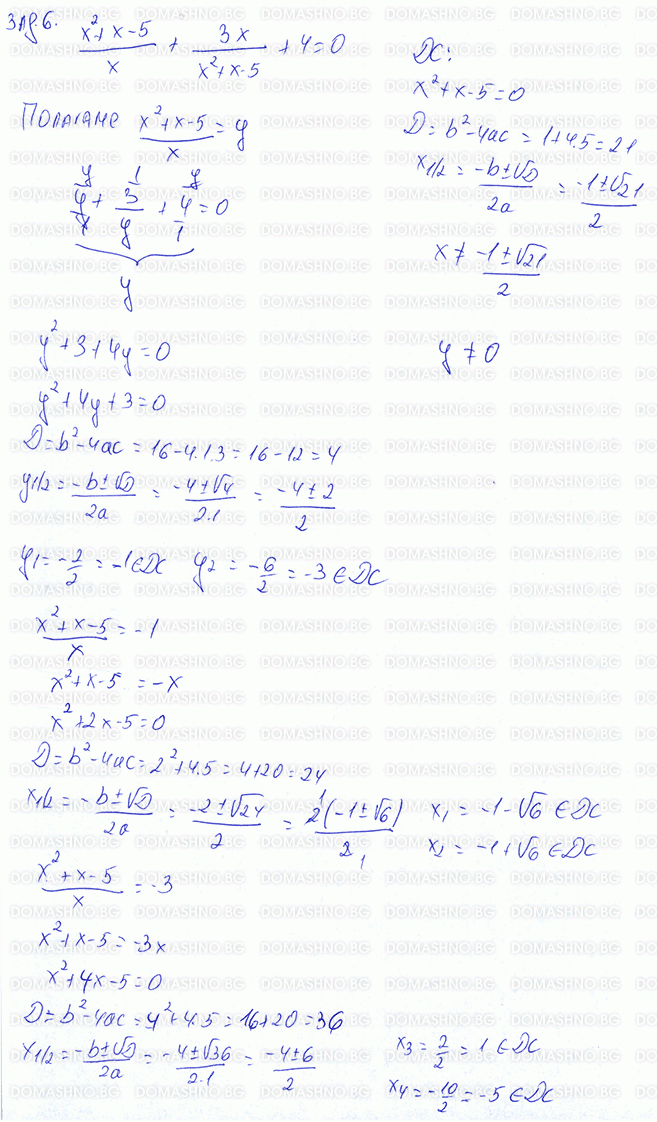 Зад.6. (x²+x-5)/x + 3x/(x²+x-5) + 4 = 0
ДС:
x²+x-5=0
D=b²-4ac = 1+4.5=21
x1/2 = (-b±√D)/2a = (-1±√21)/2
x ≠ (-1±√21)/2
Полагаме (x²+x-5)/x = y
y 1 y
y/1 + 3/y + 4/1 = 0
y
y²+3+4y=0
y ≠ 0
y²+4y+3=0
D=b²-4ac = 16-4.1.3 = 16-12 = 4
y1/2 = (-b±√D)/2a = (-4±√4)/2.1 = (-4±2)/2
y1 = -2/2 = -1 ∈ ДС y2 = -6/2 = -3 ∈ ДС
(x²+x-5)/x = -1
x²+x-5 = -x
x²+2x-5=0
D=b²-4ac=2²+4.5=4+20=24
x1/2 = (-b±√D)/2a = (-2±√24)/2 = 2(-1±√6)/2 x1 = -1-√6 ∈ ДС
x2 = -1+√6 ∈ ДС
(x²+x-5)/x = -3
x²+x-5=-3x
x²+4x-5=0
D=b²-4ac=4²+4.5=16+20=36
x1/2 = (-b±√D)/2a = (-4±√36)/2.1 = (-4±6)/2
x3 = 2/2 = 1 ∈ ДС
x4 = -10/2 = -5 ∈ ДС
DOMASHNO.BG